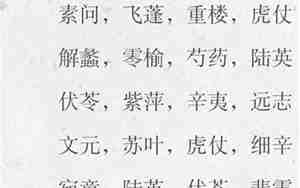 素问，飞蓬，重楼，虎仗
解蠡，零榆，芍药，陆英
伏苓，紫萍，辛夷，远志
文元，苏叶，虎仗，细辛
陆英，伏苓，